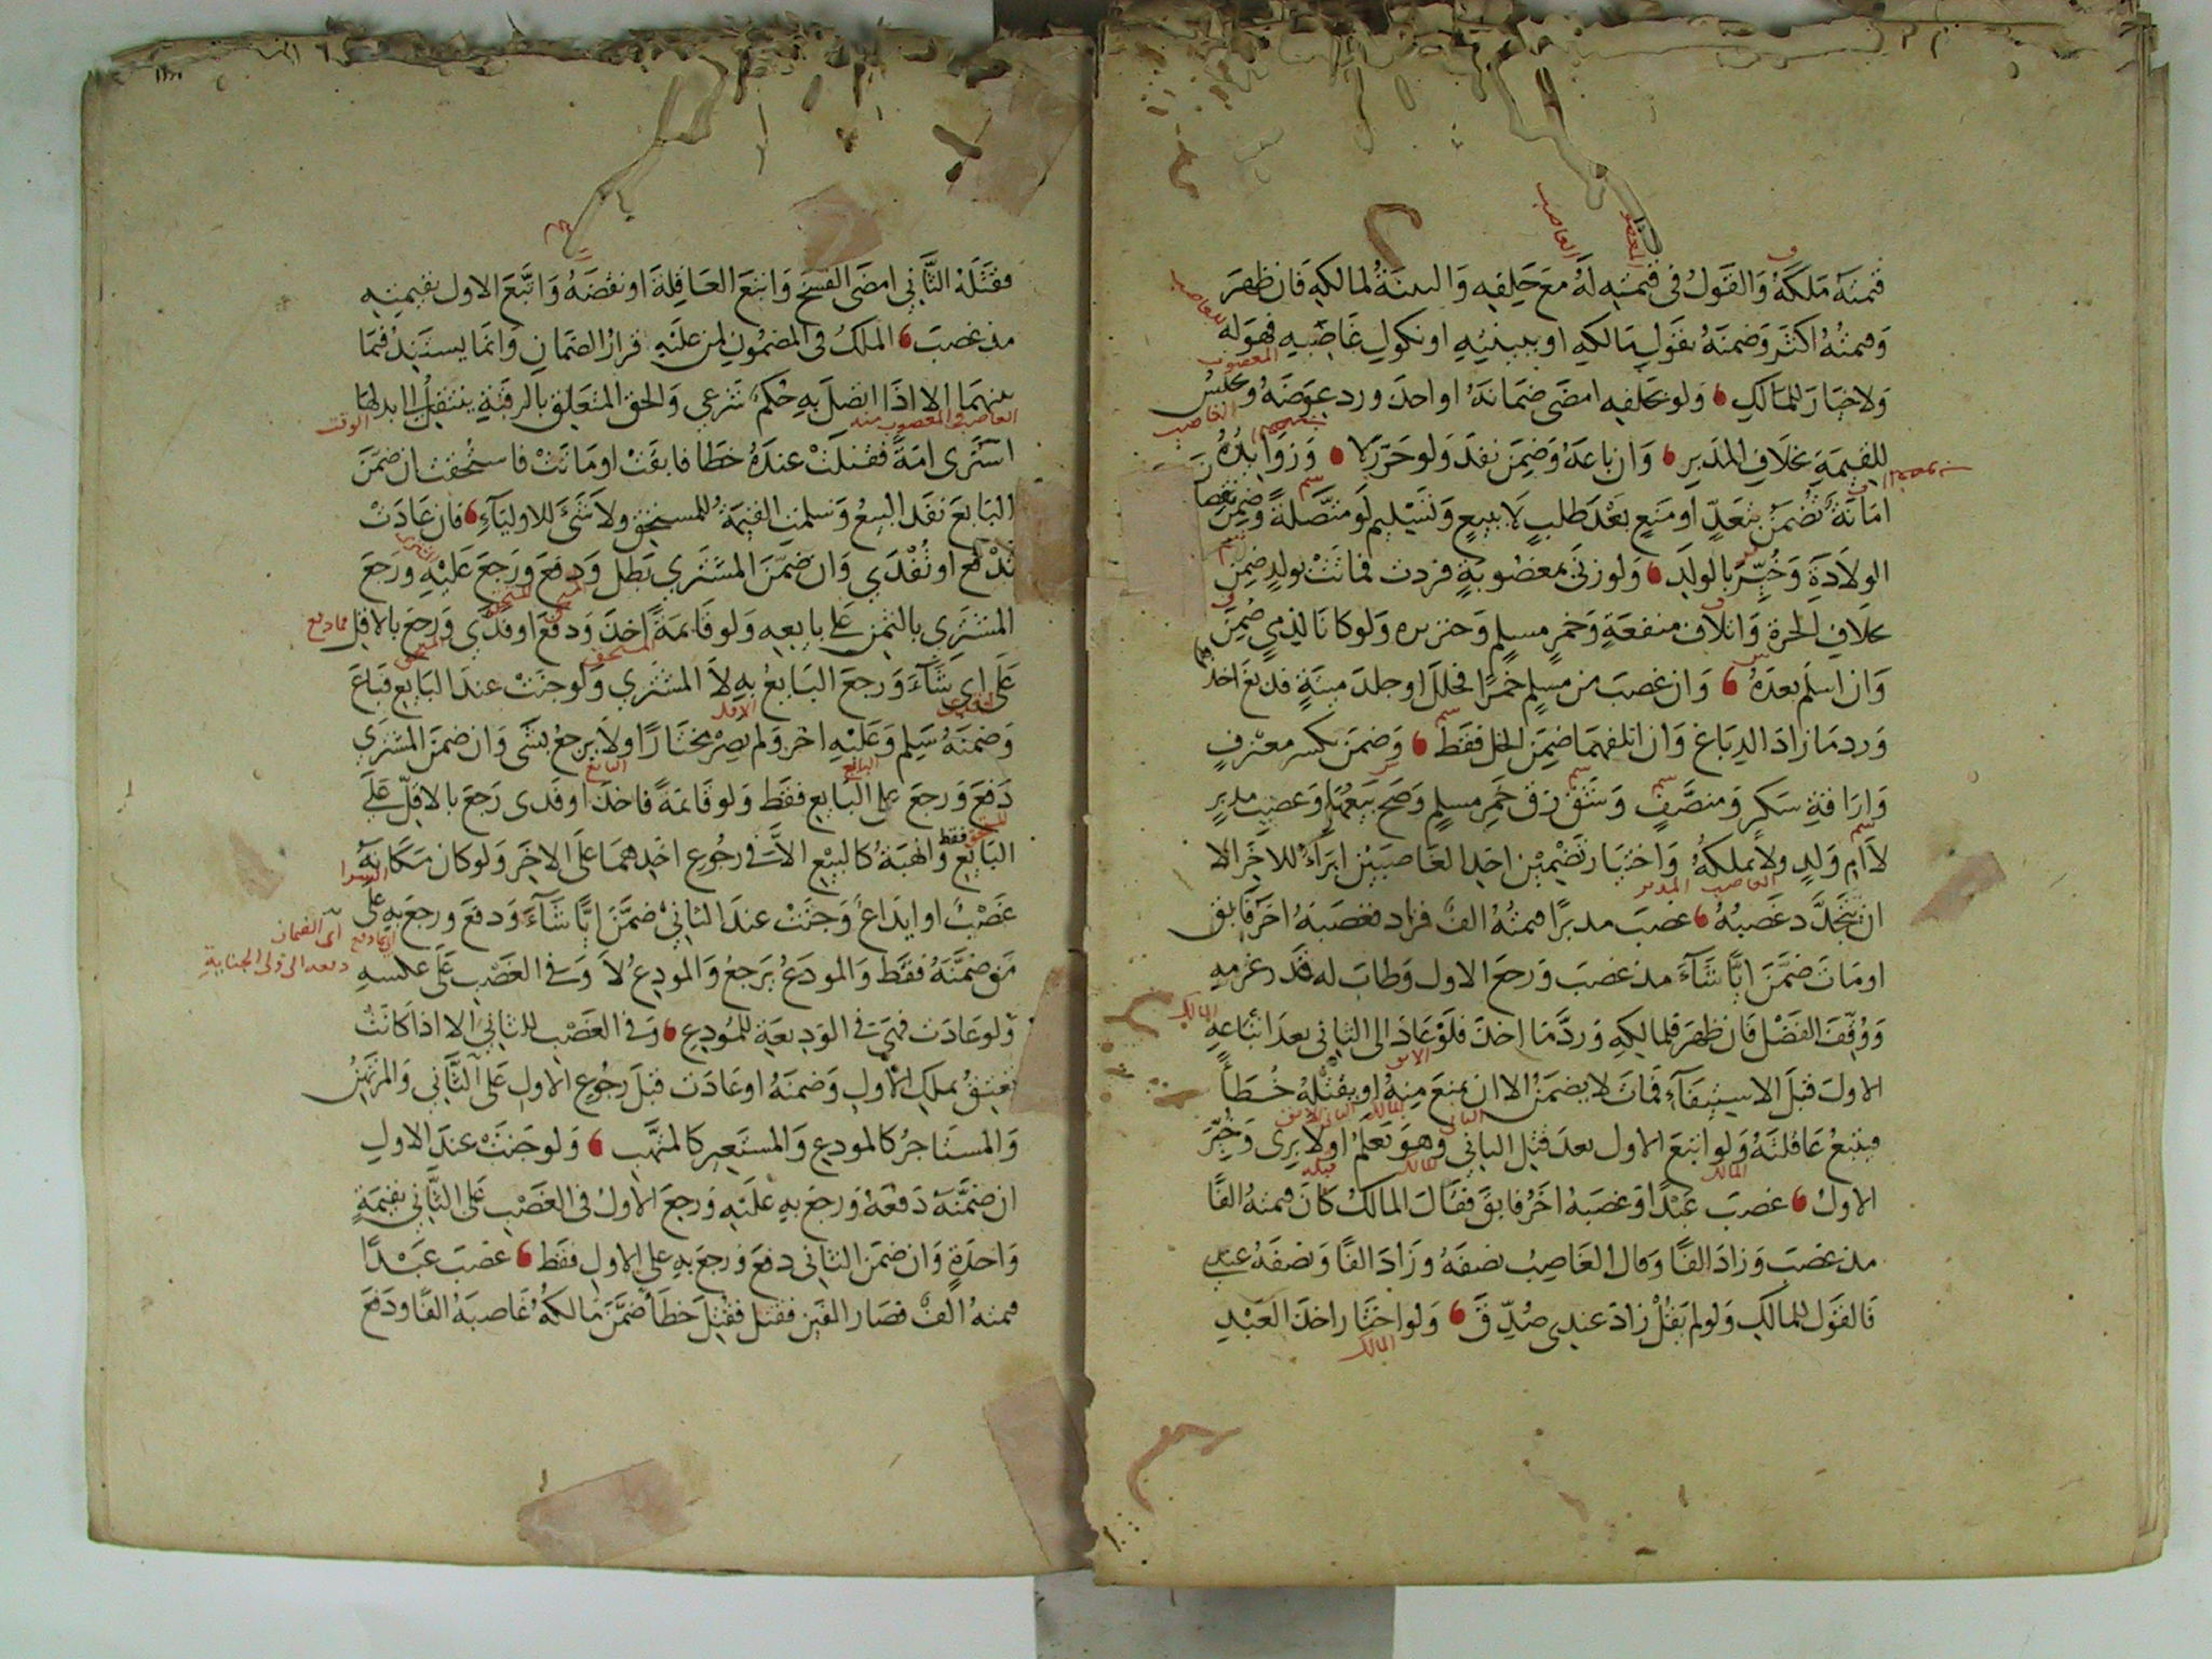 قيمته ملكه والقول في قيمته له مع حلفه والبينة لمالكه فان ظهر
وقيمته اكثر وضمنه بقول مالكه او ببينته او نكول غاصبه فهو له
ولا خيار للمالك ولو بحلفه امضى ضمانه او اخذ ورد عوضه وحبس
للقيمة بخلاف المدبر وان باعه وضمن نفذ ولو حرر لا وزوائده
امانة تضمن بتعد او منع بعد طلب لا ببيع وتسليم لو متصلة وضمن نقصان
الولادة وخير بالولد ولو زنى بمغصوبة فردت فماتت بولد ضمن
بخلاف الحرة واتلاف منفعة وخمر مسلم وخنزيره ولو كانا لذمي ضمن
وان اسلم بعده وان غصب من مسلم خمرا فخلل او جلد ميتة فدبغ اخذ
ورد ما زاد الدباغ وان اتلفهما ضمن الخل فقط وضمن بكسر معزف
واراقة سكر ومنصف وشق زق خمر مسلم وصح بيعها وغصب مدبر
لا ام ولد ولا يملكه واختيار تضمين احد الغاصبين ابراء للاخر الا
ان يتجدد غصبه غصب مدبرا قيمته الف فزاد فغصبه اخر فابق
او مات ضمن ايا شاء مذ غصب ورجع الاول وطاب له قدر غرمه
ووقف الفضل فان ظهر فلمالكه ورد ما اخذ فلو عاد الى الثاني بعد اتباعه
الاول قبل الاستيفاء فمات لا يضمن الا ان يمنع منه او يقتله خطأ
فيتبع عاقلته ولو اتبع الاول بعد قتل الثاني وهو يعلم او لا يرى وخير
الاول غصب عبدا وغصبه اخر فابق فقال المالك كان قيمته الفا
مذ غصب وزاد الفا وقال الغاصب نصفه وزاد الفا ونصفه عندي
فالقول للمالك ولو لم يقل زاد عندي صدق ولو اختار اخذ العبد
فقتله الثاني امضى الفسخ واتبع العاقلة او نقضه واتبع الاول بقيمته
مذ غصب الملك في المضمون لمن عليه قرار الضمان وانما يستند فيما
بينهما الا اذا اتصل به حكم شرعي والحق المتعلق بالرقبة ينتقل الى بدلها
اشترى امة فقتلت عنده خطا فابقت او ماتت فاستحقت ان ضمن
البايع نفذ البيع وتسلمت القيمة للمستحق ولا شيء للاولياء فان عادت
تدفع او تفدي وان ضمن المشتري بطل ودفع ورجع عليه ورجع
المشتري بالثمن على بايعه ولو قايمة اخذ ودفع او فدى ورجع بالاقل
على اي شاء ورجع البايع به لا المشتري ولو جنت عند البايع فباع
وضمنه سلم وعليه اخر ولم يصر مختارا ولا يرجع بشيء وان ضمن المشتري
دفع ورجع على البايع فقط ولو قائمة فاخذ او فدى رجع بالاقل على
البايع فقط والهبة كالبيع الا في رجوع احدهما على الاخر ولو كان مكانه
غصب او ايداع وجنت عند الثاني ضمن ايا شاء ودفع ورجع به على
من ضمنه فقط والمودع يرجع والمودع لا وفي الغصب على عكسه
ولو عادت فهي في الوديعة للمودع وفي الغصب للثاني الا اذا كانت
تعتق بملك الاول وضمنه او عادت قبل رجوع الاول على الثاني والمرتهن
والمستاجر كالمودع والمستعير كالمتهب ولو جنت عند الاول
ان ضمنه دفعه ورجع به عليه ورجع الاول في الغصب على الثاني بقيمة
واحدة وان ضمن الثاني دفع ورجع به على الاول فقط غصب عبدا
قيمته الف فصار الفين فقتل فقتل خطأ ضمن مالكه غاصبه الفا ودفع